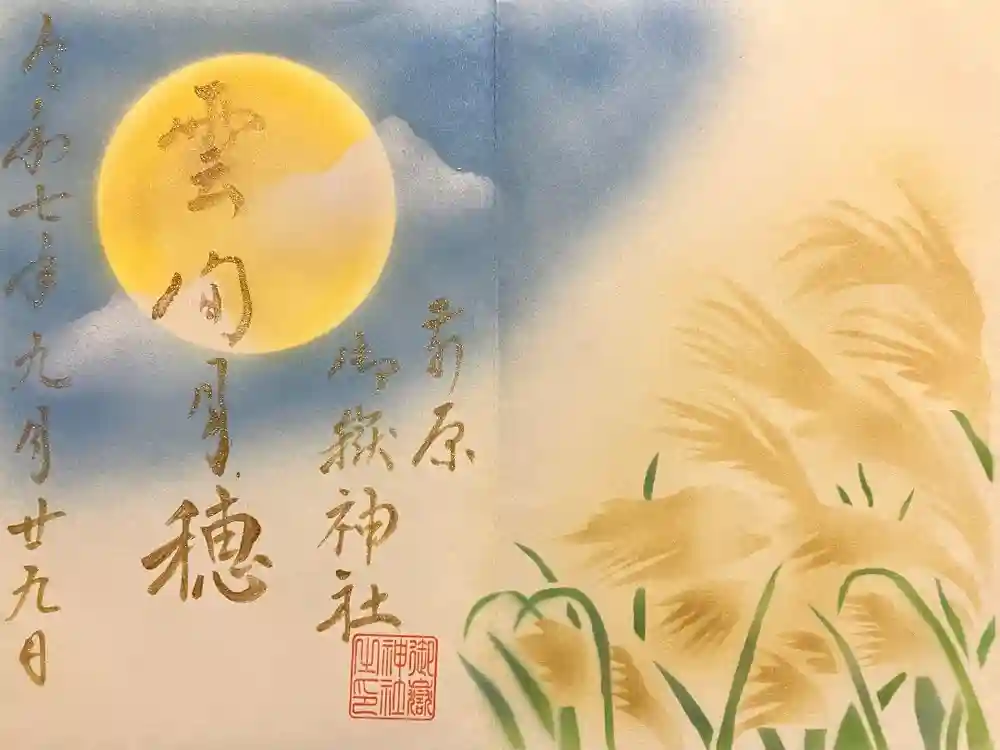 前原
御嶽神社
雲間月穂
令和七年九月廿九日
御嶽
神社
之印